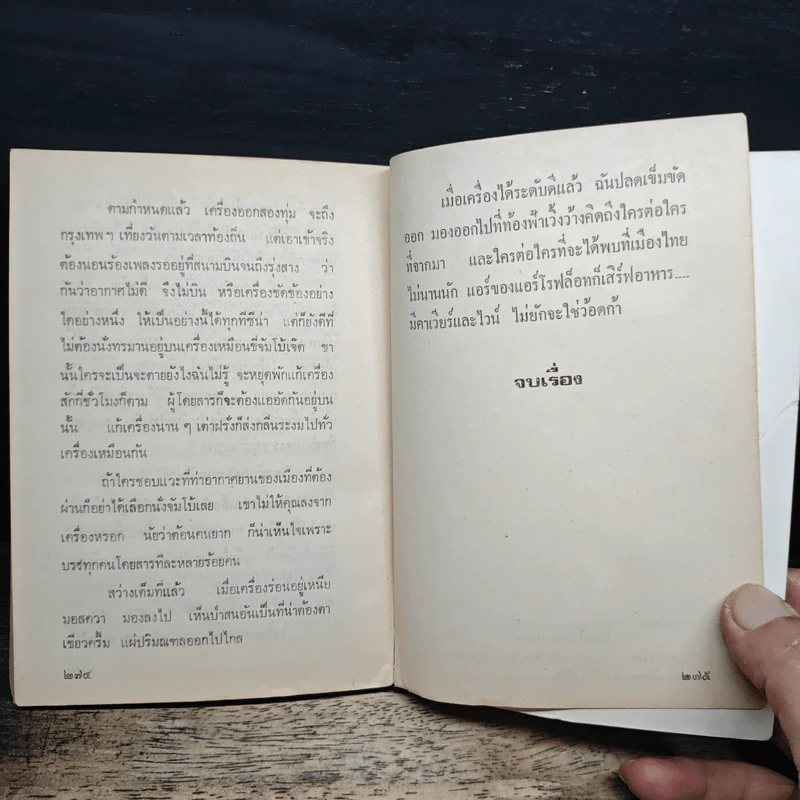 ตามกำหนดแล้ว เครื่องออกสองทุ่ม จะถึง
กรุงเทพ ฯ เที่ยงวันตามเวลาท้องถิ่น แต่เอาเข้าจริง
ต้องนอนร้องเพลงรออยู่ที่สนามบินจนถึงรุ่งสาง ว่า
กันว่าอากาศไม่ดี จึงไม่บิน หรือเครื่องขัดข้องอย่าง
ใดอย่างหนึ่ง ให้เป็นอย่างนี้ได้ทุกทีซีน่า แต่ก็ยังดีที่
ไม่ต้องนั่งทรมานอยู่บนเครื่องเหมือนขี่จัมโบ้เจ๊ต ขา
นั้นใครจะเป็นจะตายยังไงฉันไม่รู้ จะหยุดพักแก้เครื่อง
สักกี่ชั่วโมงก็ตาม ผู้โดยสารก็จะต้องแออัดกันอยู่บน
นั้น แก้เครื่องนาน ๆ เต่าฝรั่งก็ส่งกลิ่นระงมไปทั่ว
เครื่องเหมือนกัน
ถ้าใครชอบแวะที่ท่าอากาศยานของเมืองที่ต้อง
ผ่านก็อย่าได้เลือกนั่งจัมโบ้เลย เขาไม่ให้คุณลงจาก
เครื่องหรอก นัยว่าต้อนคนยาก ก็น่าเห็นใจเพราะ
บรรทุกคนโดยสารทีละหลายร้อยคน
สว่างเต็มที่แล้ว เมื่อเครื่องร่อนอยู่เหนือ
มอสควา มองลงไป เห็นป่าสนอันเป็นที่น่าต้องตา
เขียวครึ้ม แผ่ปริมณฑลออกไปไกล
๒๗๔
เมื่อเครื่องได้ระดับดีแล้ว ฉันปลดเข็มขัด
ออก มองออกไปที่ท้องฟ้าเวิ้งว้างคิดถึงใครต่อใคร
ที่จากมา และใครต่อใครที่จะได้พบที่เมืองไทย
ไม่นานนัก แอร์ของแอร์โรฟล็อทก็เสิร์ฟอาหาร....
มีคาเวียร์และไวน์ ไม่ยักจะใช่ว้อดก้า
จบเรื่อง
๒๗๕